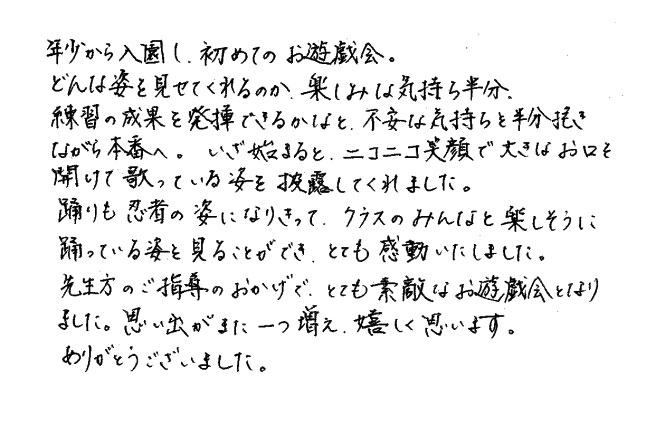 年少から入園し、初めてのお遊戯会。
どんな姿を見せてくれるのか、楽しみな気持ち半分、
練習の成果を発揮できるかなと、不安な気持ちを半分抱き
ながら本番へ。いざ始まると、ニコニコ笑顔で大きなお口を
開けて歌っている姿を披露してくれました。
踊りも忍者の姿になりきって、クラスのみんなと楽しそうに
踊っている姿を見ることができ、とても感動いたしました。
先生方のご指導のおかげで、とても素敵なお遊戯会となり
ました。思い出がまた一つ増え、嬉しく思います。
ありがとうございました。